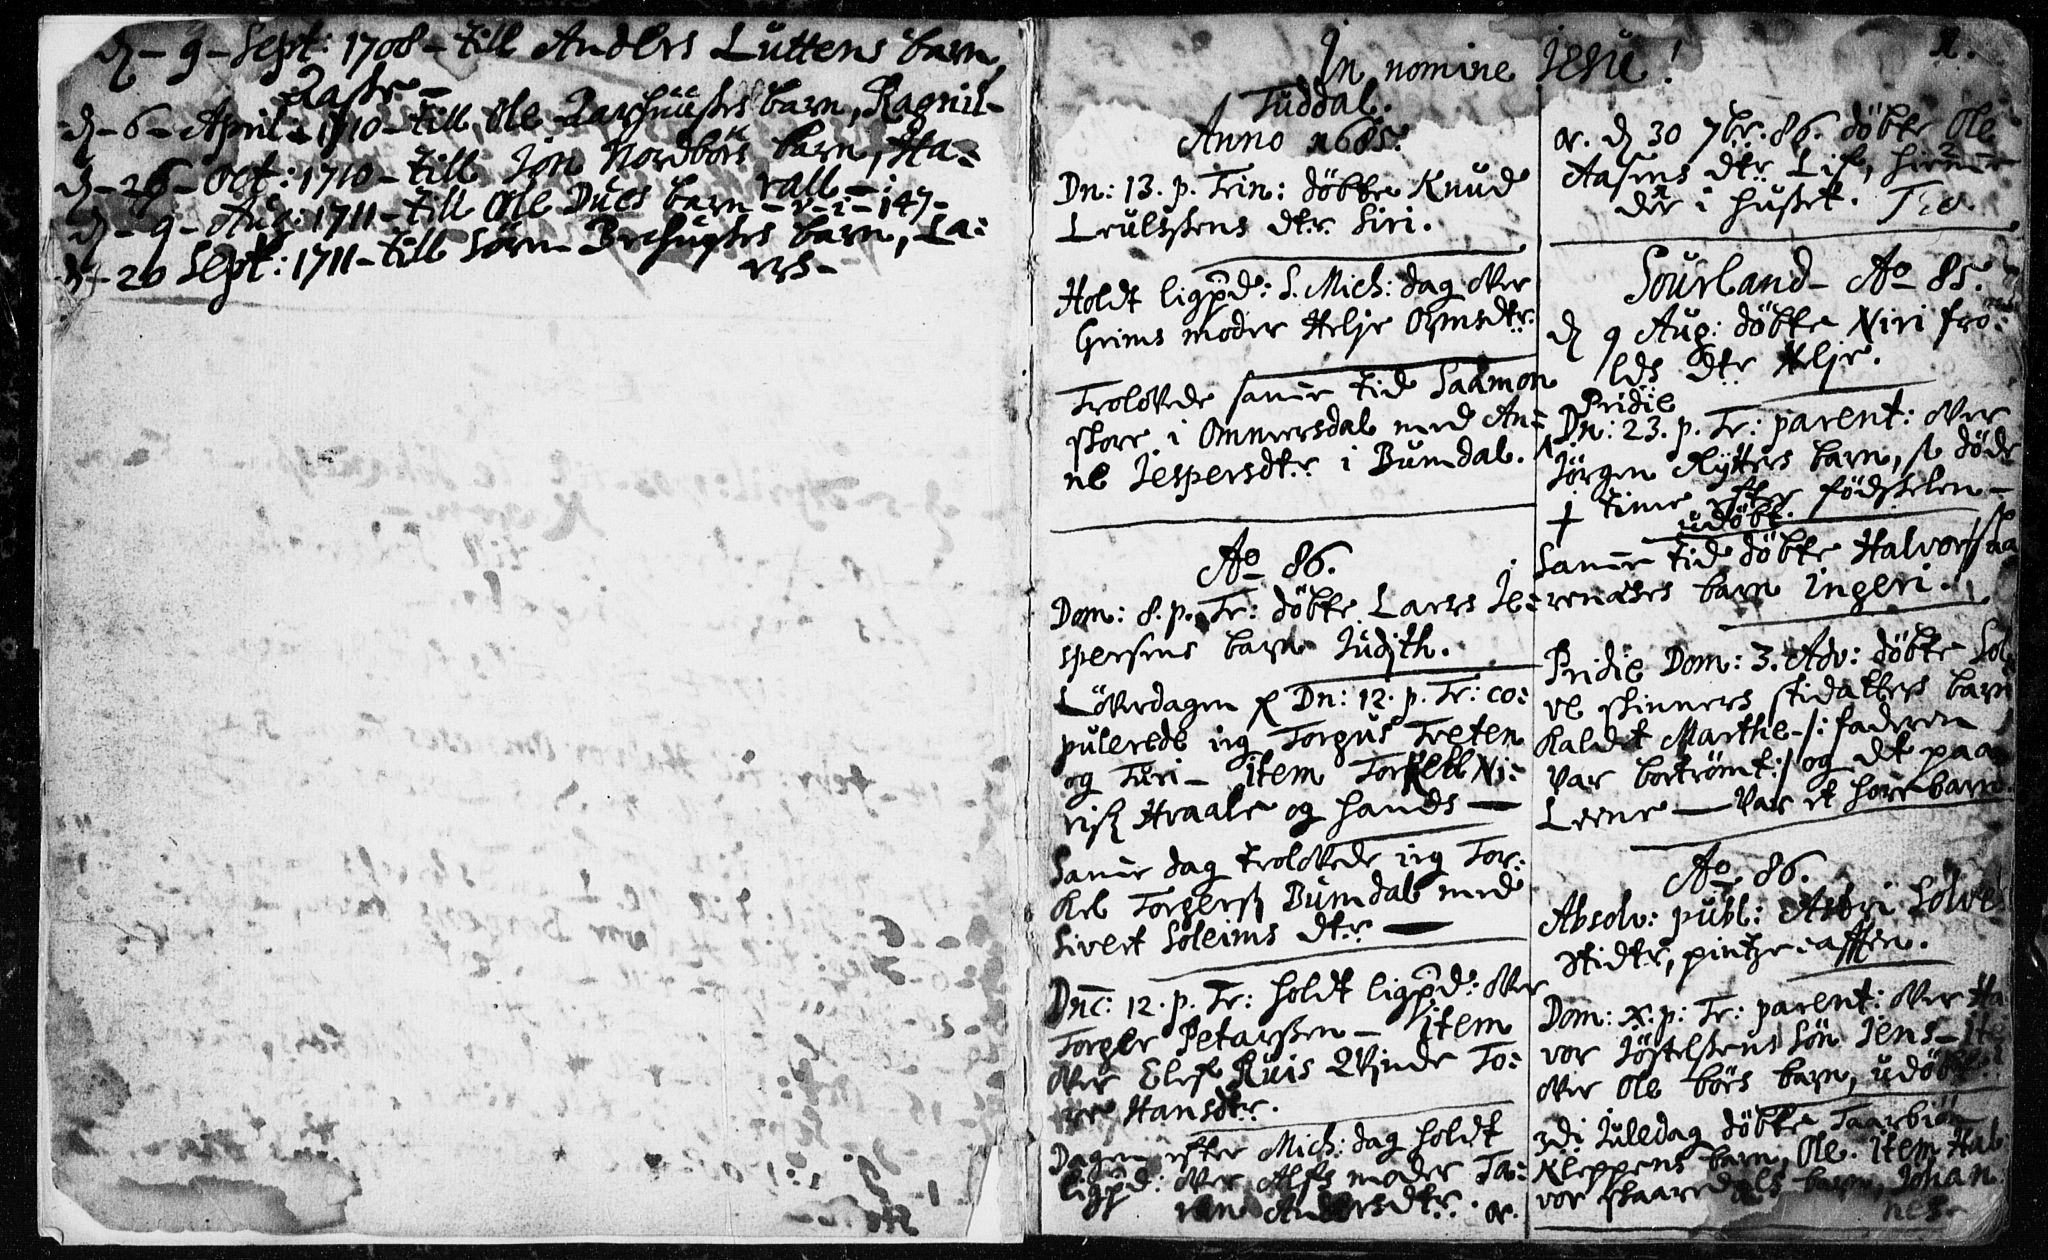 d - 9 - Sept: 1708 - till Anders Luttens barn,
Aasse -
d - 6 - April - 1710 - till Ole Barhuuses barn, Ragnil-
d - 26 - Oct: 1710 - till Jon Nordbös barn, Ha-
vall -
d - 9 - Aug: 1711 - till Ole Dues barn - v - i - 147 -
d - 20 Sept: 1711 - till Sören barn, La-
vrs -
In nomine Jesu!
Tuddal.
Anno 1685.
Dn: 13. p. Trin: döbte Knud
Leulssens dtr. Siri.
Holdt ligpd: S. Mich: dag over
Grims moder Helje Ormsdtr.
Trolovede samme tid Saamon
store i Ommersdal med An-
ne Jespersdtr i Bumdal.
Ao 86.
Dom: 8. p. Tr: döbte Lares Je-
spersens barn Judith.
Löverdagen Dn: 12. p. Tr: co-
pulerede ieg Torgus Treten
og Turi - item Torkell Ni-
ris Hraale og hands —
Samme dag trolovede ieg Tor-
kel Torgers Bumdal med
Sivert Soleims dtr —
Dnc: 12. p. Tr: holdt ligpd: over
Torger Petarssen - item
over Elef Ruis Qvinde To-
ne Hansdtr.
Dagen efter Mich: dag holdt
ligpd: over Alfs moder Ta-
ran Andersdtr. or.
1.
or. d 30 7br: 86. döbte Ole
Aasens dtr Lif, hiemme
der i huset. Tid.
Sourland - Ao 85.
d 9 Aug: döbte Niri frö-
lds dtr Helje.
Pridie
Dn: 23. p. Tr: parent: over
Jörgen Rytters barn, döde
1 time efter födselen -
udöbt.
Samme tid döbte Halvor Haa
renæses barn Ingeri.
Pridie Dom: 3. Adv: döbte Sol
ve skinners stidatters barn
kaldet Marthe - /: faderen
var bortrömt :/ og det paa
Leene — var et horebarn.
Ao 86.
Absolv: publ: Astri Solve
Stidtr,
Dom: X. p: Tr: parent: over Ha
vor Jöstelsens Sön Jens - Ite
over Ole börs barn, udöbt.
3di Juledag döbte Taarbiön
Kleppens barn, Ole. Item Hal-
vor skaaredals barn, Johan
nes.